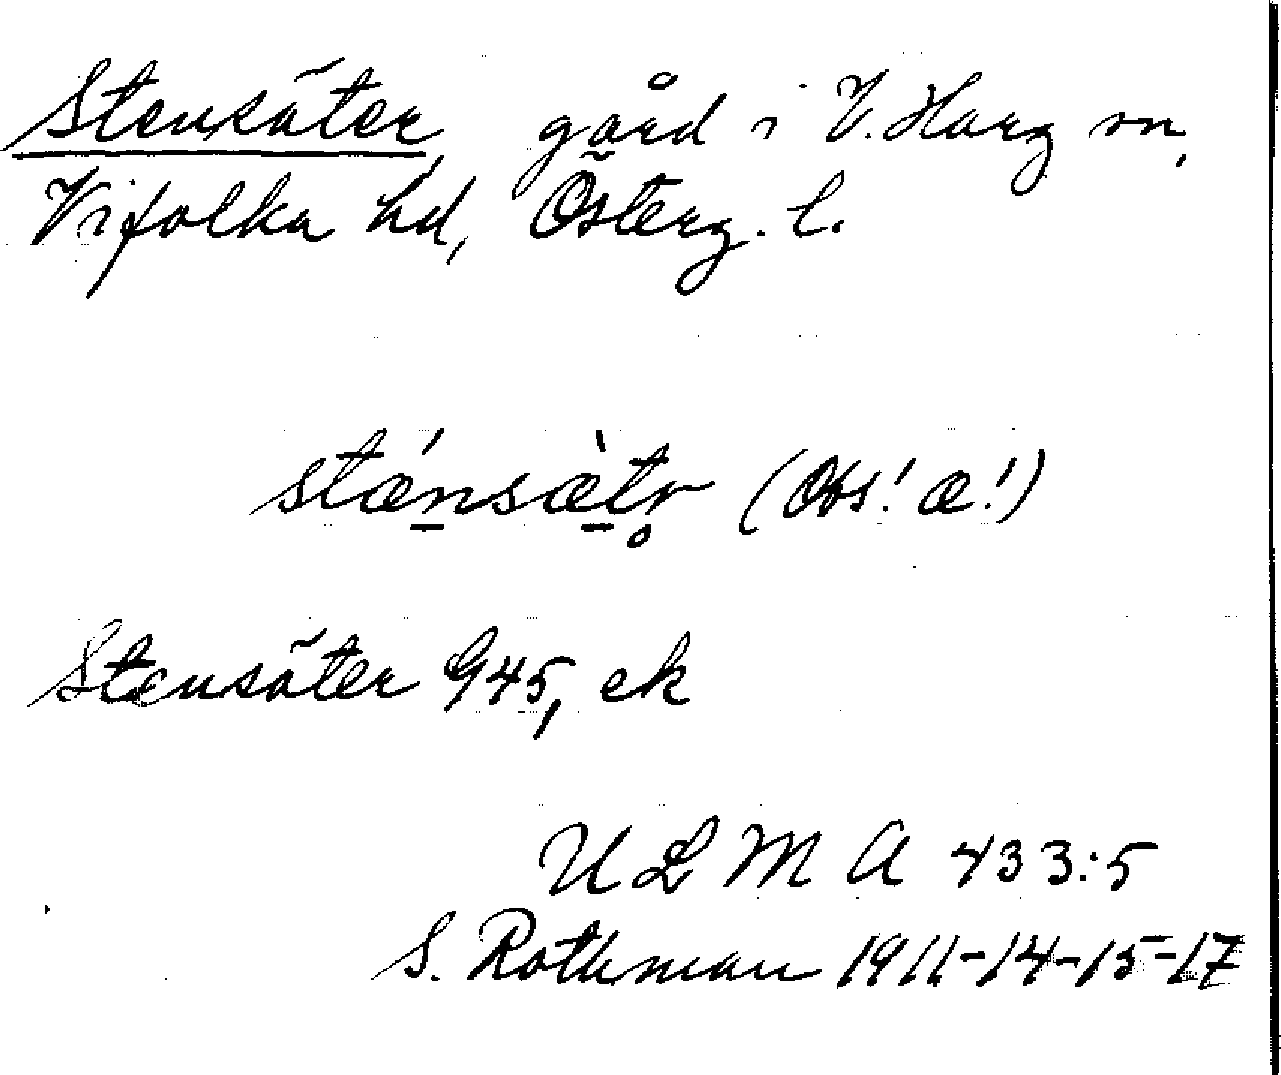 Stensäter, gård i V. Harg sn,
Vifolka hd, Österg. l.
stǽnsæ̀tr̥ (Obs! æ!)
Stensäter G45, ek
ULMA 433:5
S. Rothman 1911-14-15-17